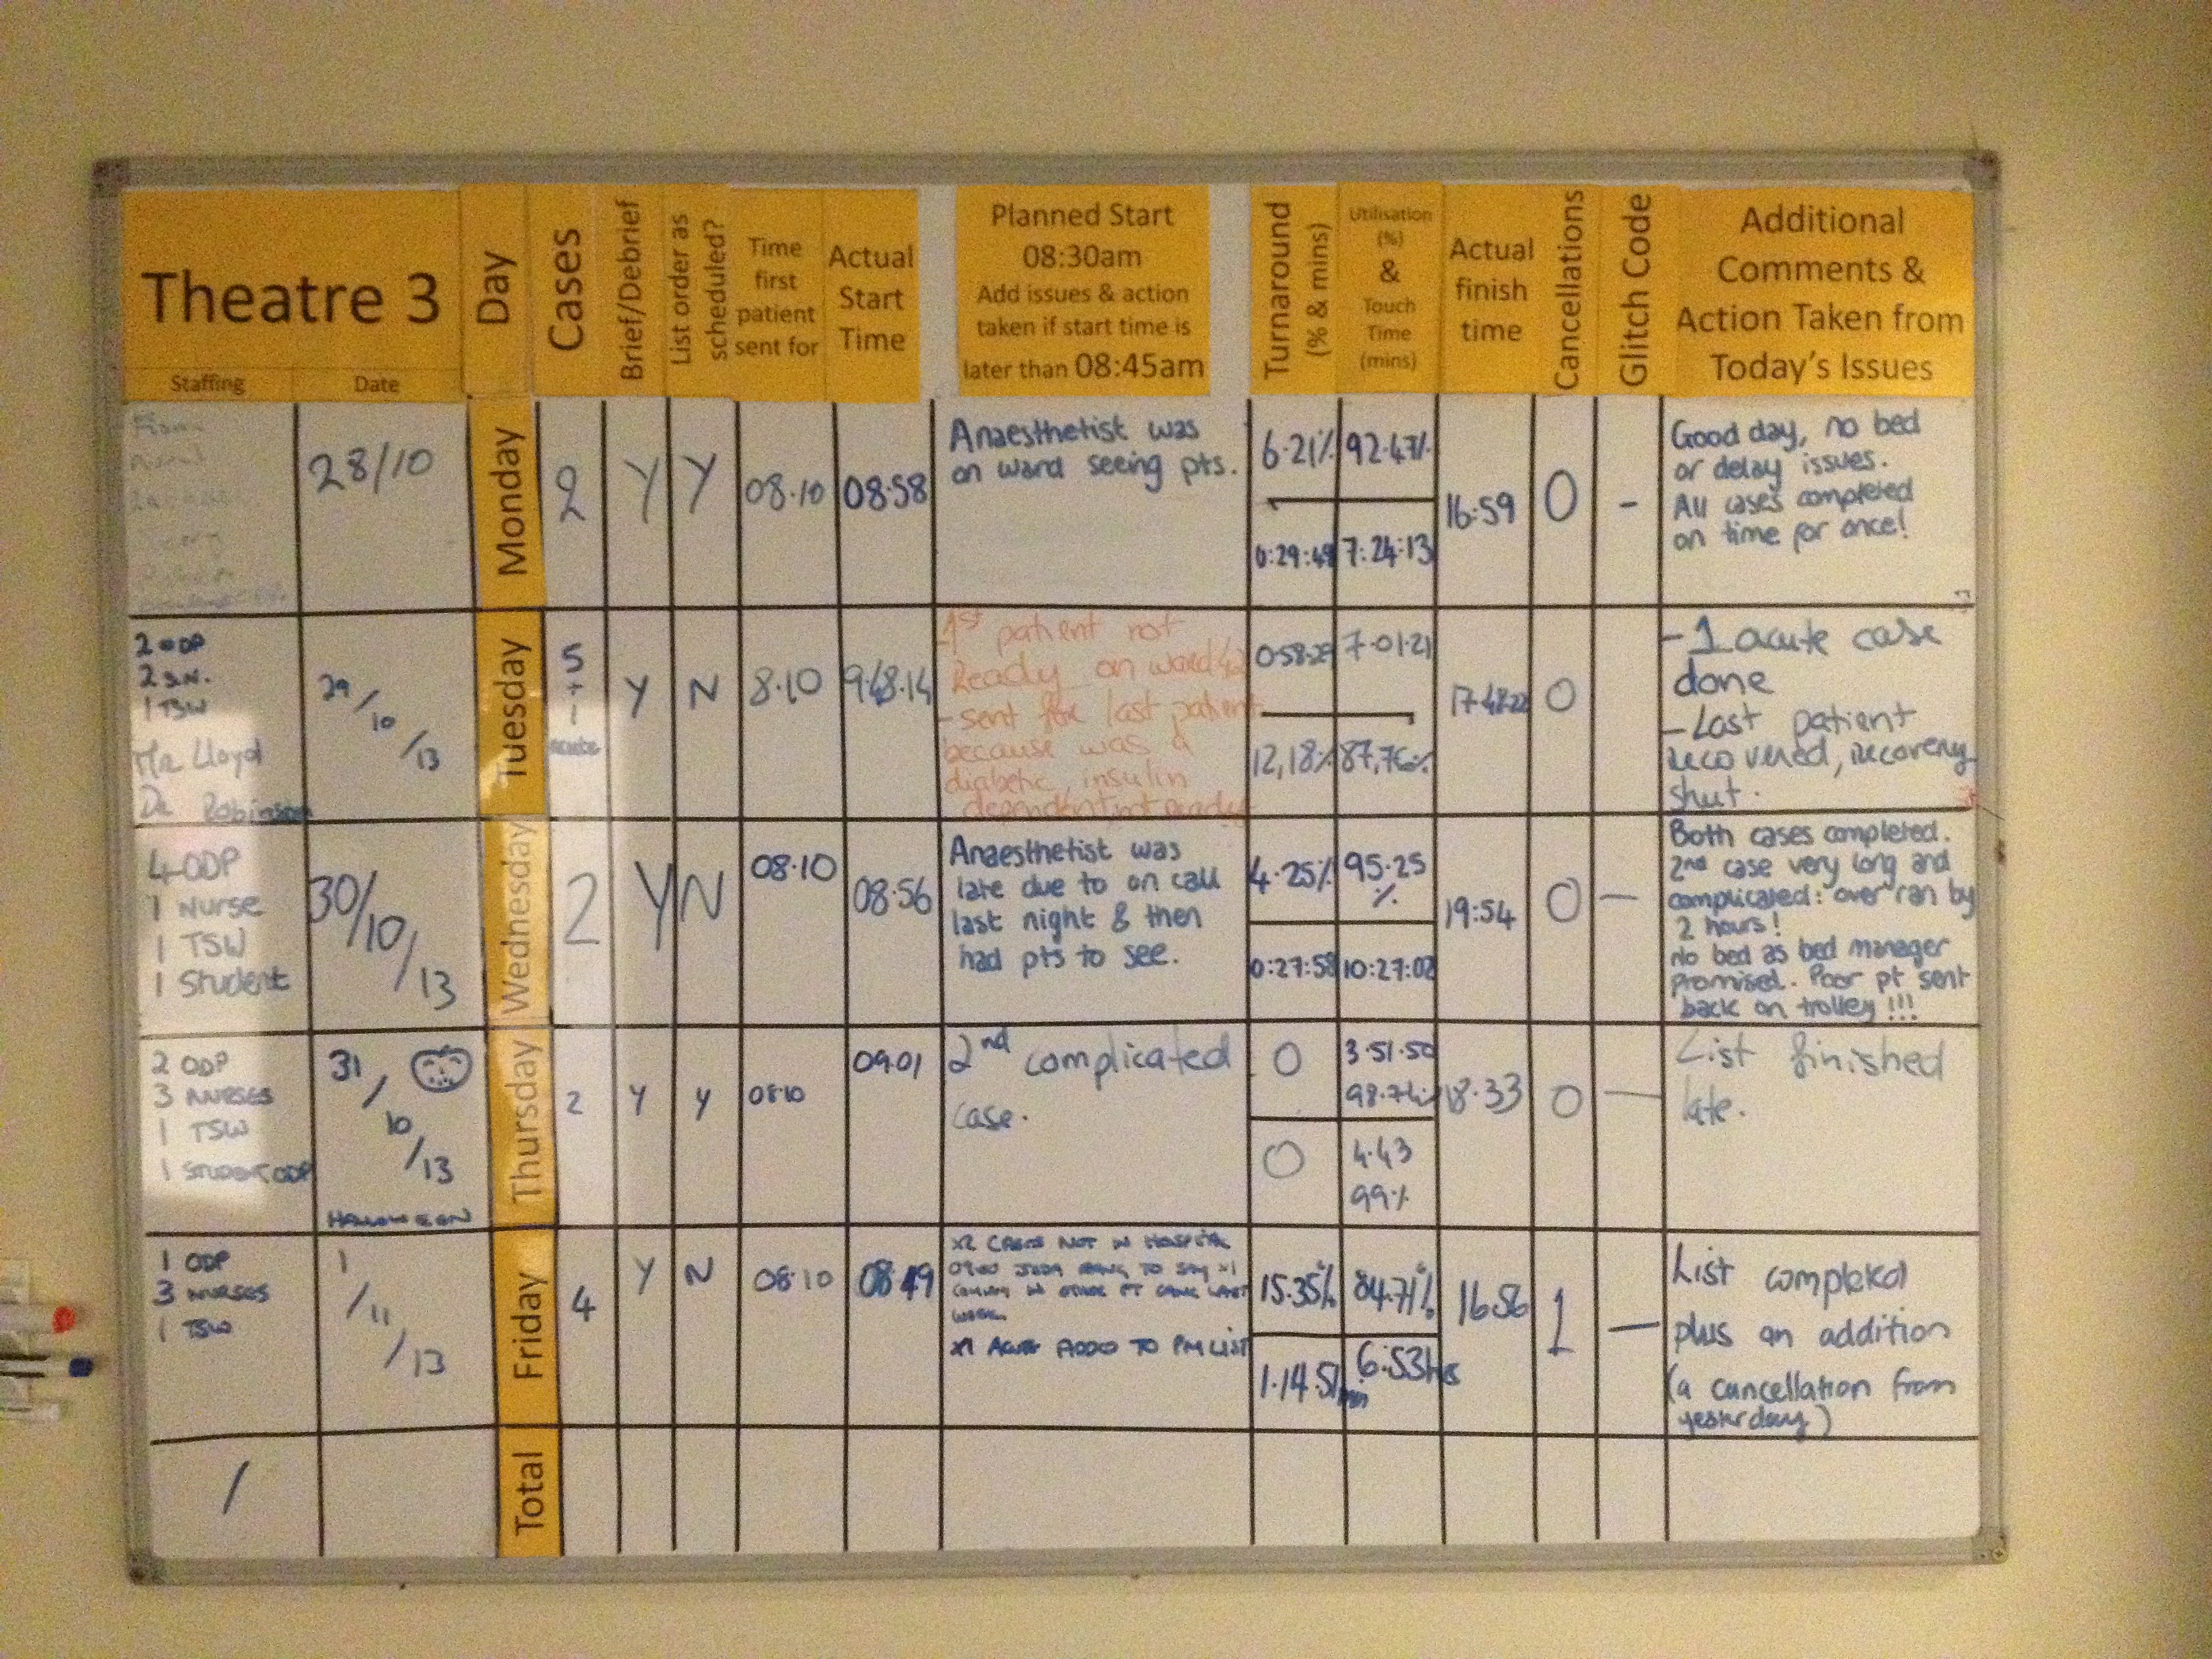 Theatre 3
Staffing
Date
Day
Cases
Brief/Debrief
List order as
scheduled?
Time
first
patient
sent for
Actual
Start
Time
Planned Start
08:30am
Add issues & action
taken if start time is
later than 08:45am
Turnaround
(% & mins)
Utilisation
(%)
&
Touch
Time
(mins)
Actual
finish
time
Cancellations
Glitch Code
Additional
Comments &
Action Taken from
Today's Issues
28/10
Monday
2
Y
Y
08.10
08:58
Anaesthetist was
on ward seeing pts.
6.21%
0:29:49
92.47%
7:24:13
16:59
0
-
Good day, no bed
or delay issues.
All cases completed
on time for once!
2 ODP
2 S.N.
1 TSW
Mr Lloyd
Dr Robinson
29/10/13
Tuesday
5
+
1
acute
Y
N
8.10
9.48.14
1st patient not
Ready on ward
- sent for last patient
because was a
diabetic, insulin
dependent, not ready
0.58.29
12,18%
7.01.21
87,76%
17.48.22
0
- 1 acute case
done
- Last patient
recovered, recovery
shut.
4 ODP
1 Nurse
1 TSW
1 Student
30/10/13
Wednesday
2
Y
N
08.10
08:56
Anaesthetist was
late due to on call
last night & then
had pts to see.
4.25%
0:27:58
95.25
%
10:27:02
19:54
0
—
Both cases completed.
2nd case very long and
complicated: over ran by
2 hours!
No bed as bed manager
promised. Poor pt sent
back on trolley!!!
2 ODP
3 NURSES
1 TSW
1 STUDENT ODP
31/10/13
HALLOWEEN
Thursday
2
Y
Y
08.10
09.01
2nd complicated
case.
0
0
3.51.50
98.7%
4.43
99%
18.33
0
—
List finished
late.
1 ODP
3 NURSES
1 TSW
1/11/13
Friday
4
Y
N
08.10
08.49
X2 CASES NOT IN HOSPITAL
0900 RANG TO SAY X1
COMING IN OTHER PT CANC LAST
WEEK
X1 ACUTE ADDED TO PM LIST
15.35%
1.14.51
84.71%
6.53hrs
16.56
1
—
List completed
plus an addition
(a cancellation from
yesterday)
/
Total